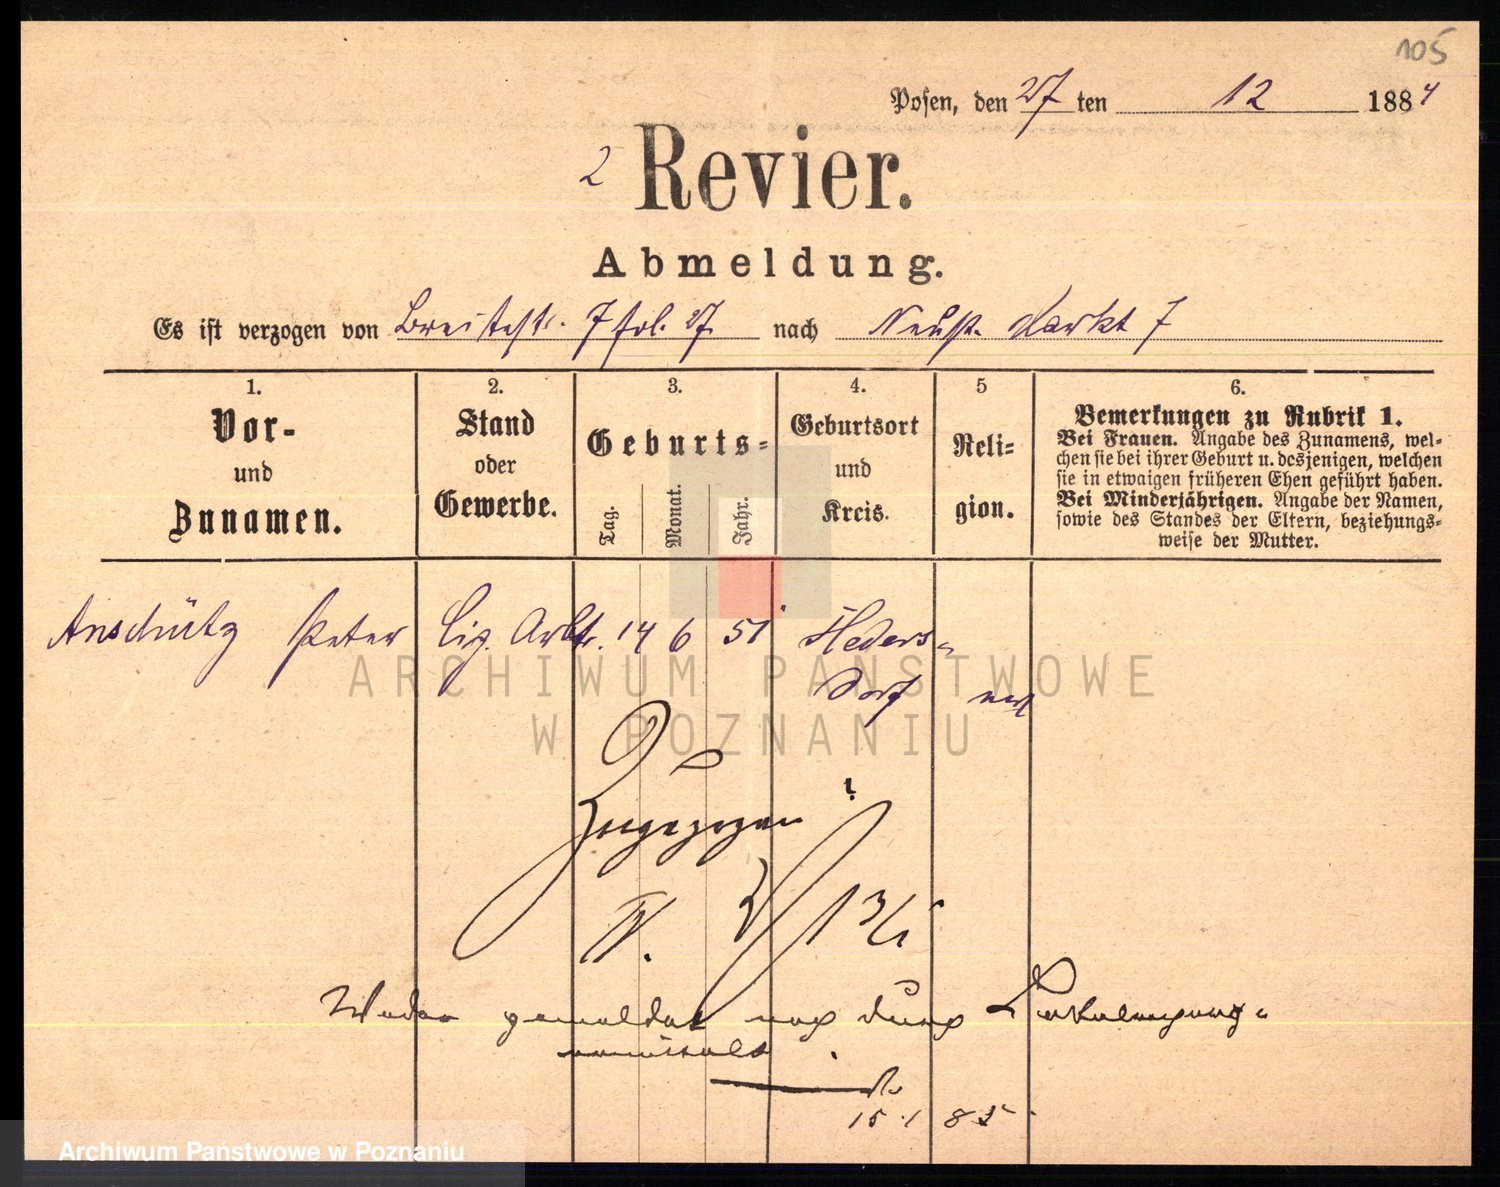 105
Posen, den 27 ten 12 1884
2 Revier.
Abmeldung.
Es ist verzogen von Breitestr. 7 fol. 27 nach Neust. Markt 7
1.
Vor-
und
Zunamen.
2.
Stand
oder
Gewerbe.
3.
Geburts-
Tag.
Monat.
Jahr.
4.
Geburtsort
und
Kreis.
5
Reli-
gion.
6.
Bemerkungen zu Rubrik 1.
Bei Frauen. Angabe des Zunamens, wel-
chen sie bei ihrer Geburt u. desjenigen, welchen
sie in etwaigen früheren Ehen geführt haben.
Bei Minderjährigen. Angabe der Namen,
sowie des Standes der Eltern, beziehungs-
weise der Mutter.
Anschütz Peter Cig. Arbtr. 14 6 51 Heders-
dorf
Zugezogen ?
Weder gemeldet noch durch
ermittelt.
15 1 85
ARCHIWUM PAŃSTWOWE
W POZNANIU
Archiwum Państwowe w Poznaniu